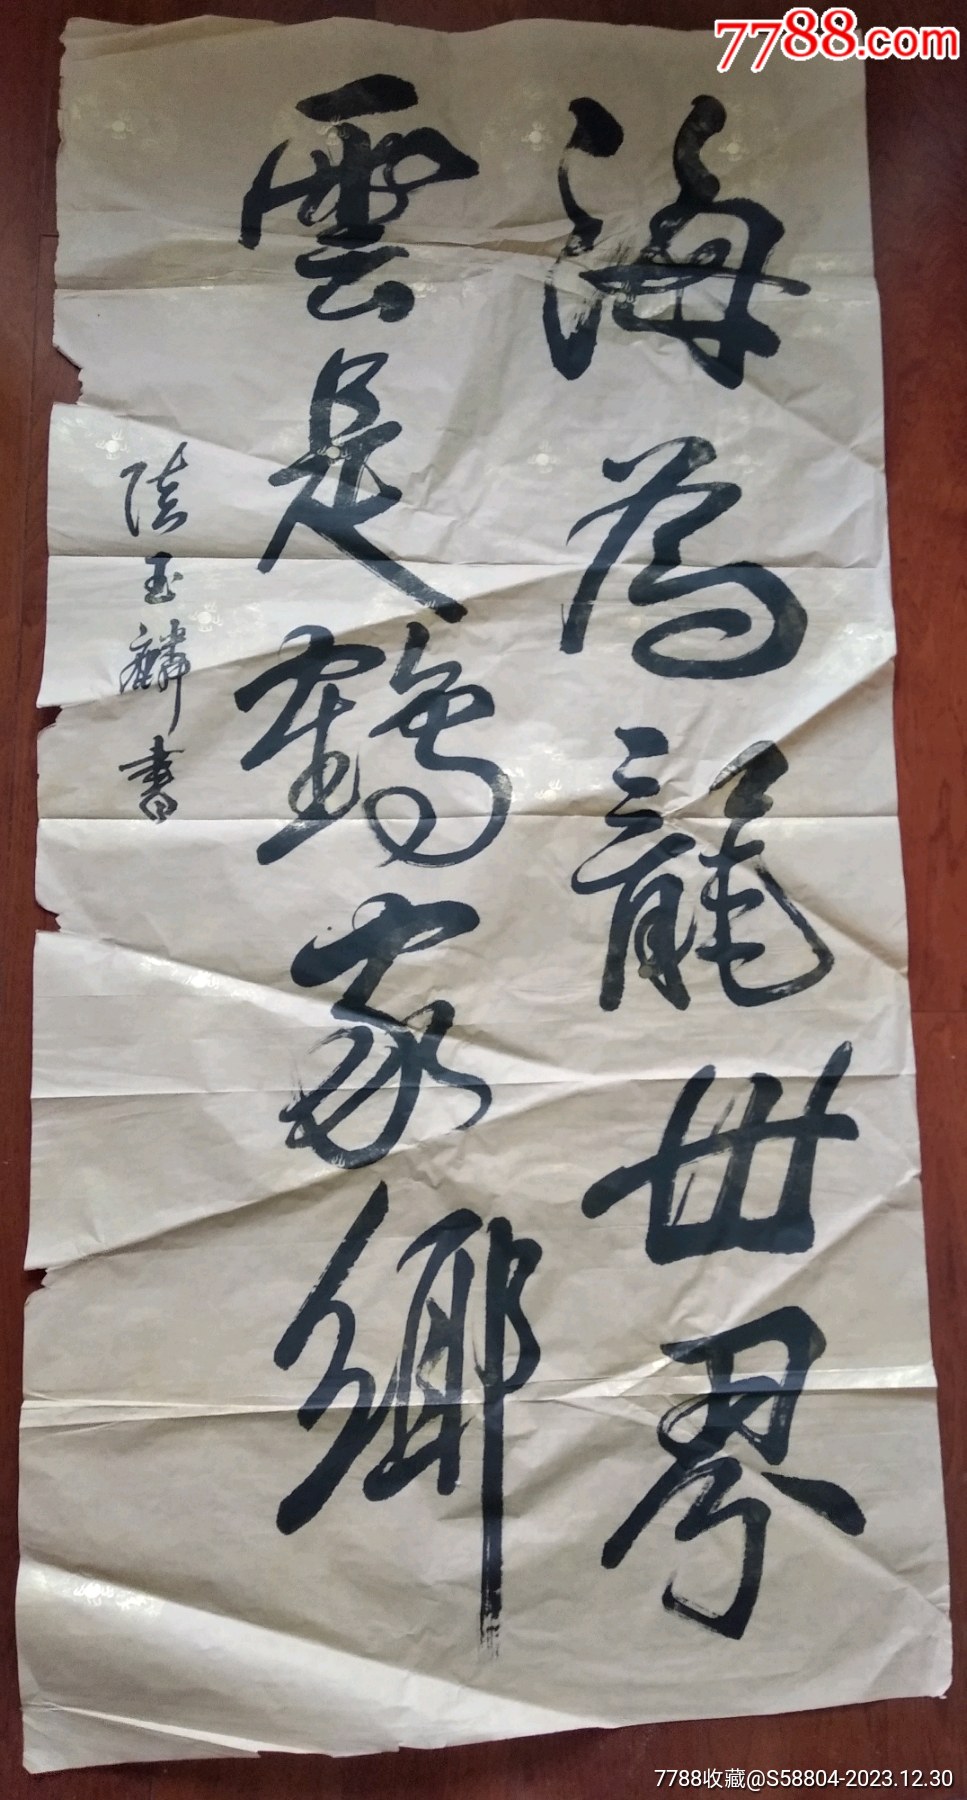 7788.com
海為龍世界
雲是鶴家鄉
陸玉麟書
7788收藏@S58804-2023.12.30